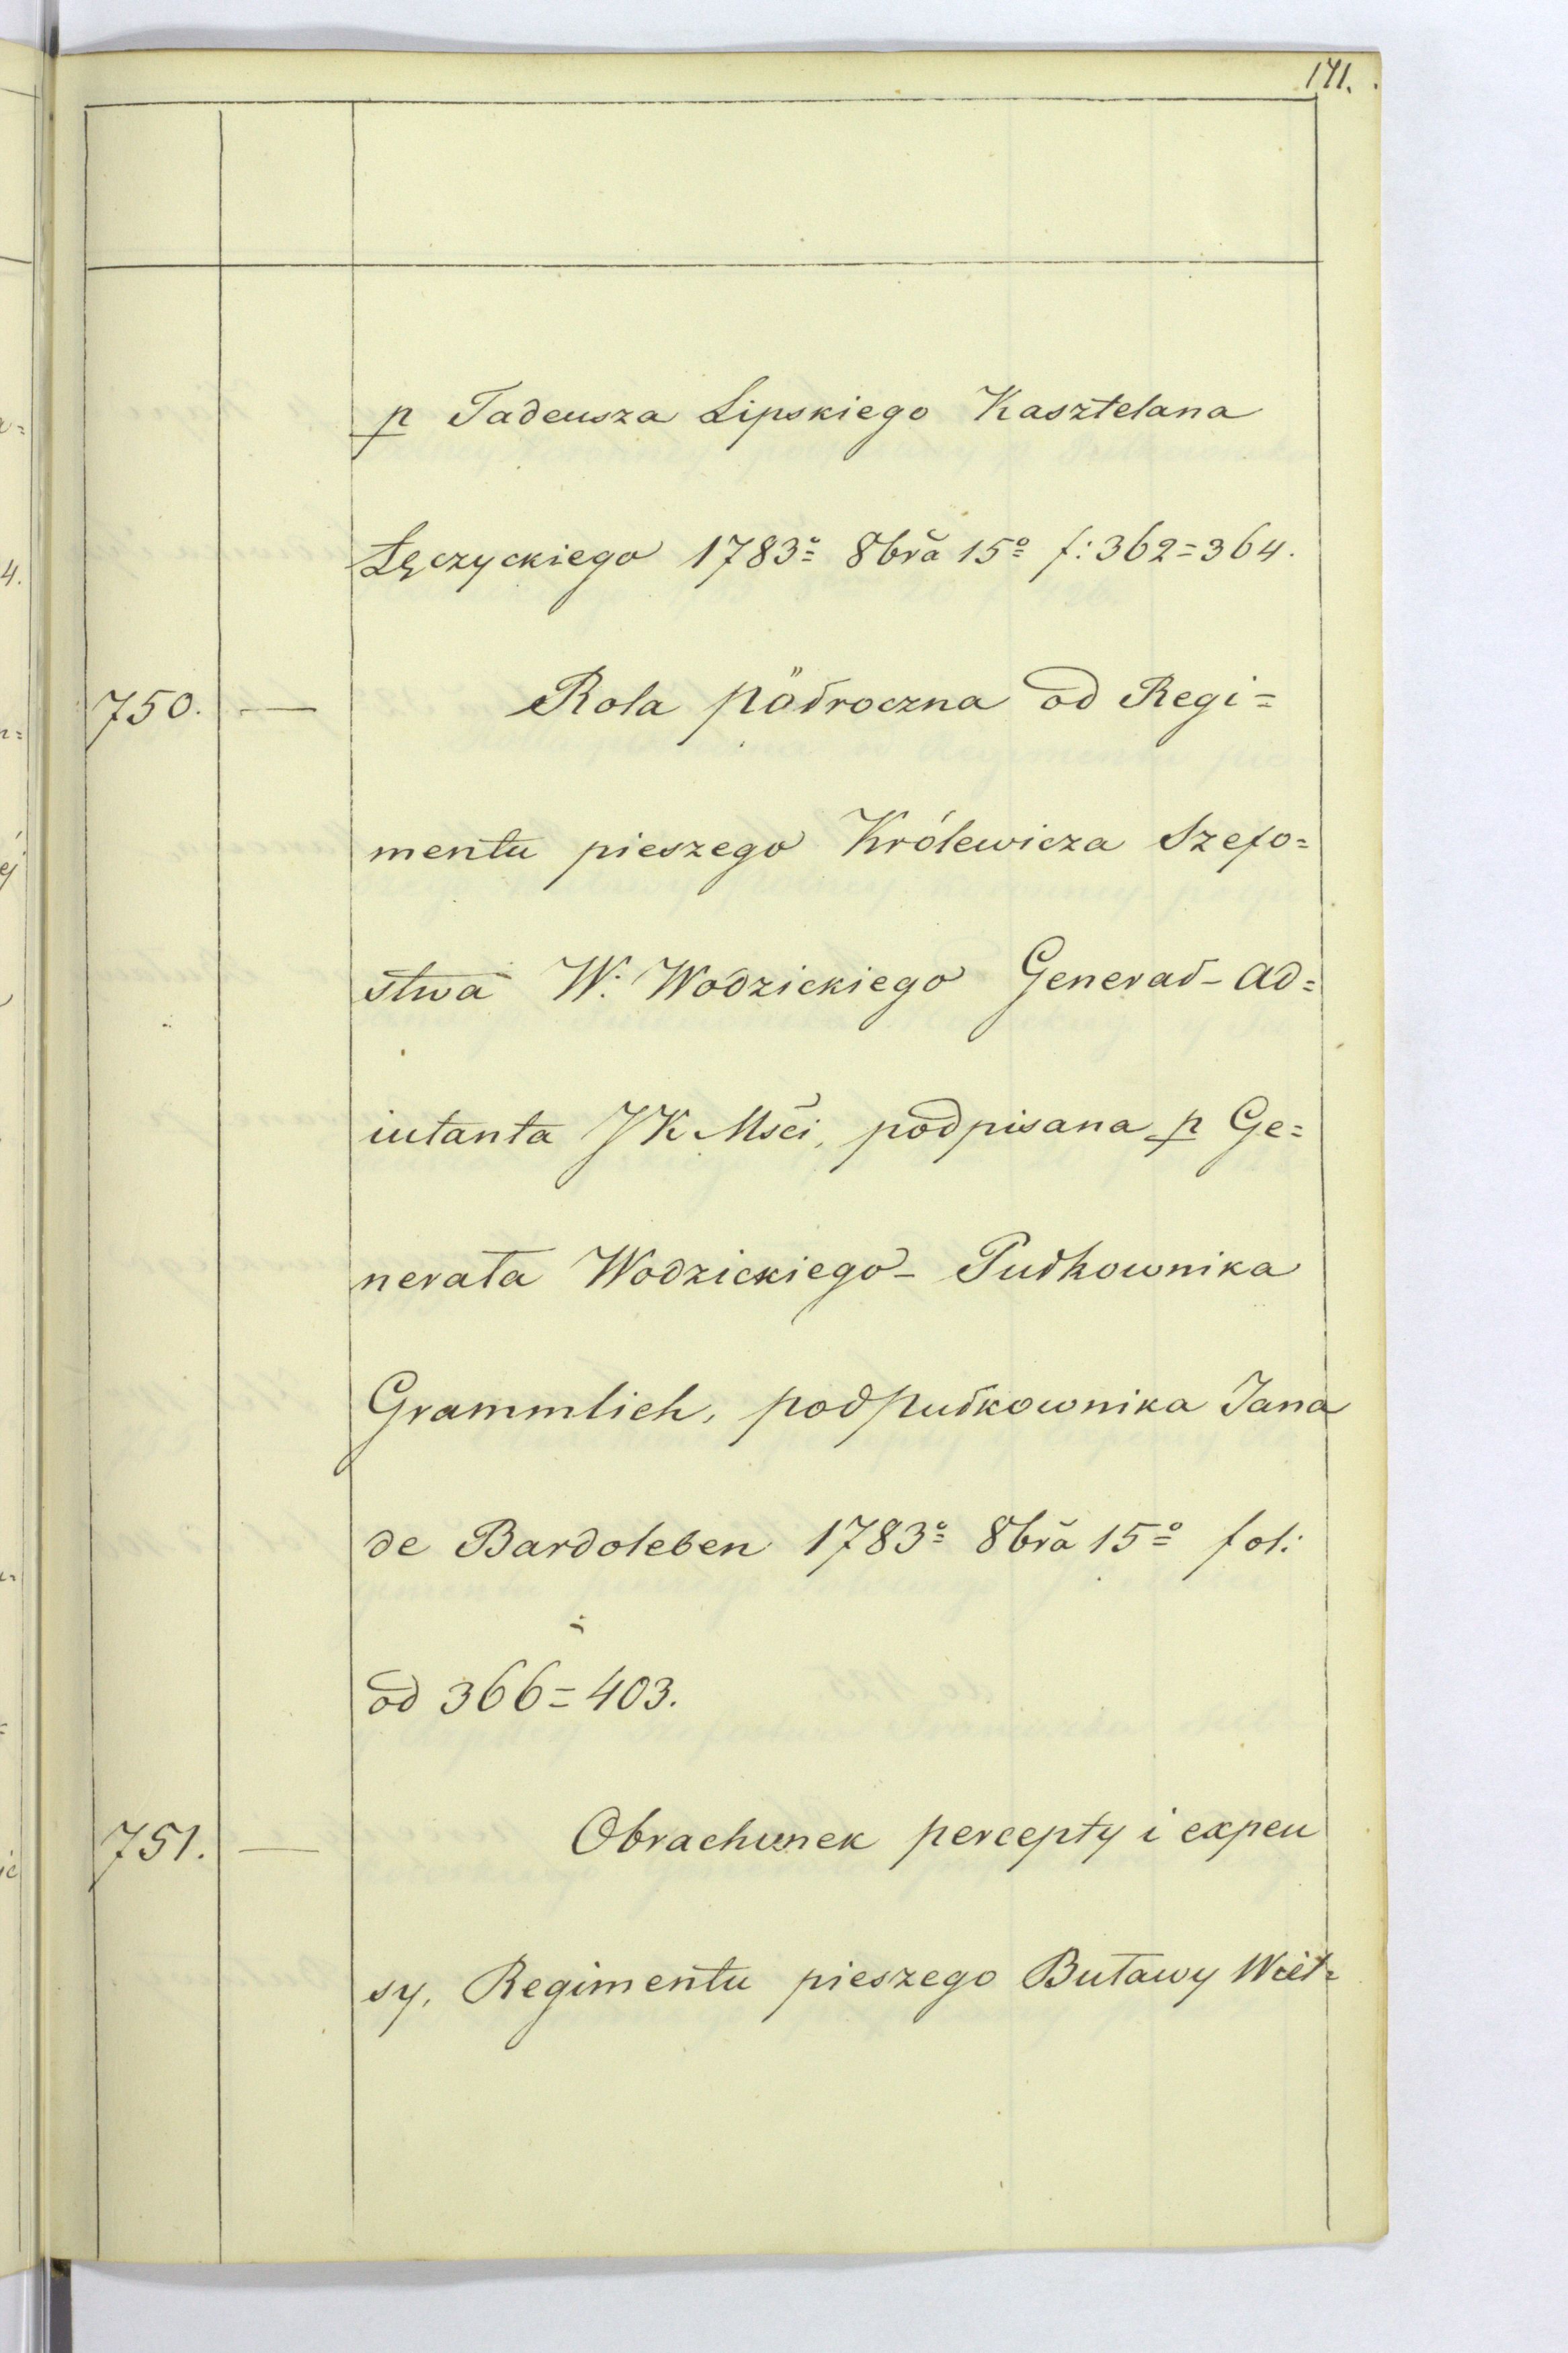 171.
p Tadeusza Lipskiego Kasztelana
Łęczyckiego 1783º 8bra 15º f: 362=364.
750. — Rola półroczna od Regi=
mentu pieszego Królewicza Szefo=
stwa W. Wodzickiego Generał-Ad=
iutanta JK Mści, podpisana p Ge=
nerała Wodzickiego - Pułkownika
Grammlich, podpułkownika Jana
de Bardoleben 1783º 8bra 15º fol:
od 366=403.
751. — Obrachunek percepty i expen
sy, Regimentu pieszego Buławy Wiel=